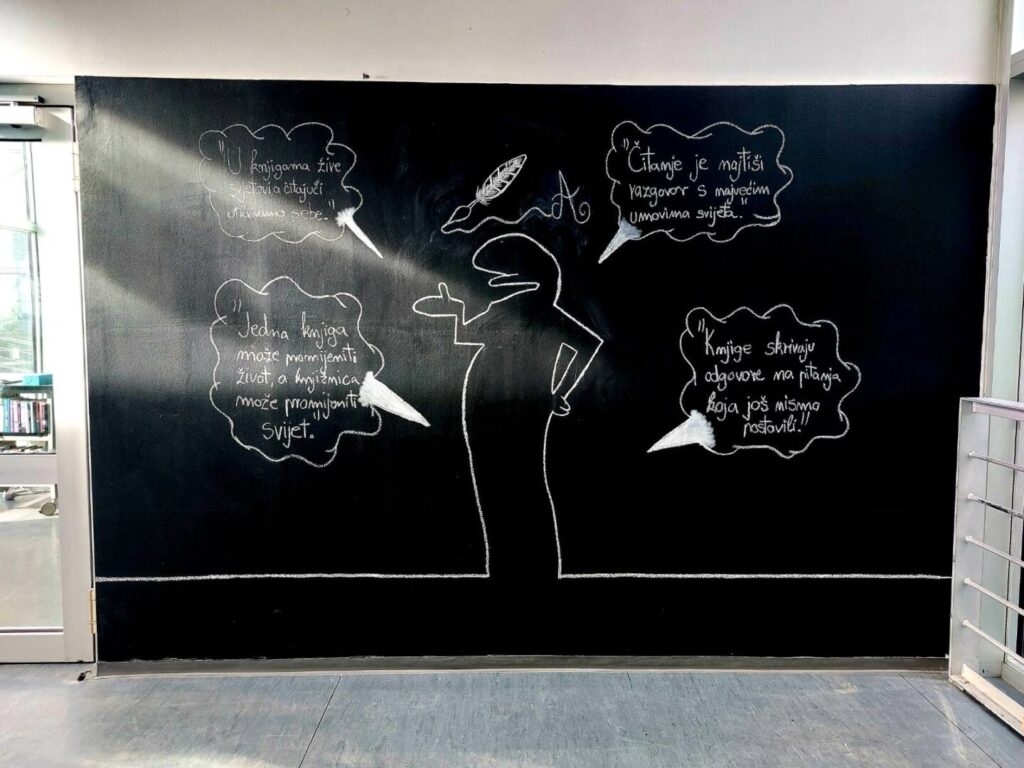 "U knjigama žive
svjetovi a čitajući
otkrivamo sebe."
"Čitanje je najtiši
razgovor s največim
umovima svijeta."
A
"Jedna knjiga
može promijeniti
život, a knjižnica
može promijeniti
svijet."
"Knjige skrivaju
odgovore na pitanja
koja još nismo
postavili."